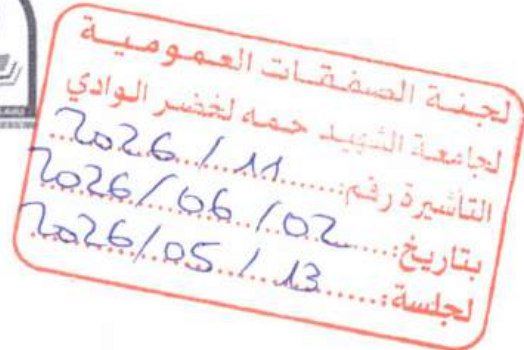 لجنة الصفقات العمومية
لجامعة الشهيد حمه لخضر الوادي
التأشيرة رقم: 11 / 2026
بتاريخ: 02 / 06 / 2026
لجلسة: 13 / 05 / 2026